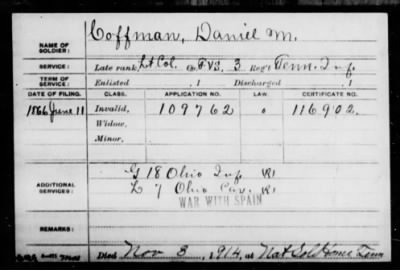 Coffman, Daniel M.
NAME OF SOLDIER:
SERVICE: Late rank, Lt Col. Co. F & S, 3 Reg't Tenn. Inf.
TERM OF SERVICE: Enlisted , 1 Discharged , 1
DATE OF FILING. CLASS. APPLICATION NO. LAW. CERTIFICATE NO.
1866 June 11 Invalid, 109762 o 116902.
Widow,
Minor,
G 18 Ohio Inf
L 7 Ohio Cav.
ADDITIONAL SERVICES:
WAR WITH SPAIN
REMARKS:
Died Nov 3, 1914, at Nat Sold Home Tenn